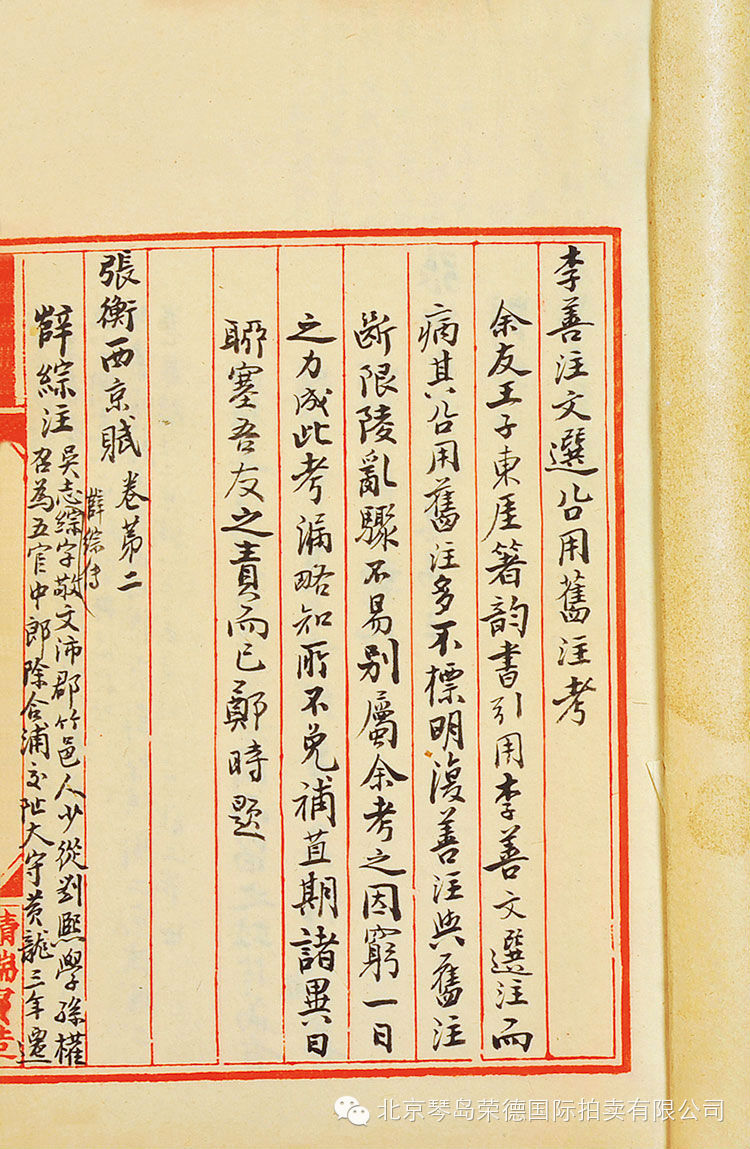 李善注文選㳂用舊注考
余友王子東厓箸韵書引用李善文選注而
病其㳂用舊注多不標明復善注與舊注
斷限陵亂驟不易别屬余考之因窮一日
之力成此考漏略知所不免補苴期諸異日
聊塞吾友之責而已鄭時題
張衡西京賦卷苐二
薛綜注
薛綜傳
吳志綜字敬文沛郡竹邑人少從劉熙學孫權
召為五官中郎除合浦交阯大守黄龍三年遷
清
造
北京琴岛荣德国际拍卖有限公司